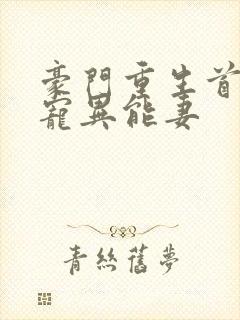 豪門重生首
寵異能妻
青絲舊夢